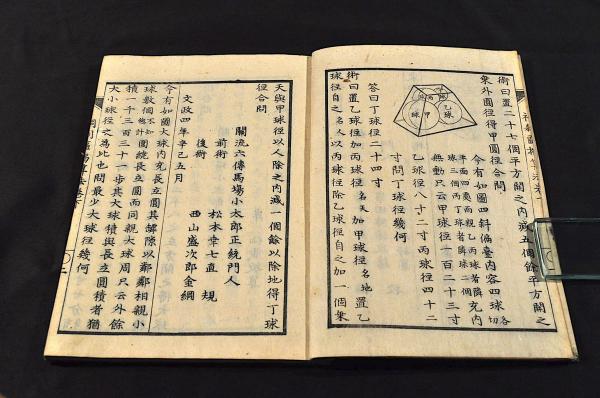 術曰置二十七個平方開之内減五個餘平方開之
乗外圓徑得甲圓徑合問
今有如圖四斜偏臺内容四球各切
無動只云甲球徑一百二十三寸
乙球徑八十二寸丙球徑四十二
寸問丁球徑幾何
甲球
乙球
答曰丁球徑二十四寸
術曰置乙球徑加丙球徑名天加甲球徑名地置乙
球徑自之名人以丙球徑除乙球徑自之加一個乗
天與甲球徑以人除之内減一個餘以除地得丁球
徑合問
關流六傳馬場小太郎正統門人
前術 松本幸七直規
後術 西山盛次郎金綱
文政四年辛巳五月
今有如圖大球内充長立圓其罅隙以鄰鄰相親小
球數個不知總計圍繞長立圓而同親大球周只云外餘
積一千三百三十一步其大球積與長立圓積者猶
大小球徑之為比也問最少大球徑幾何